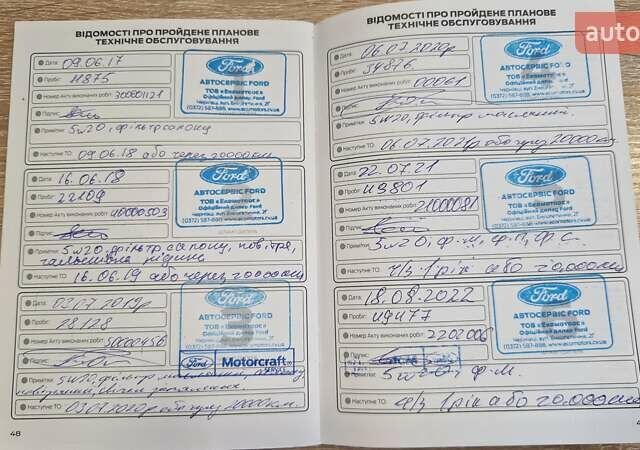 ВІДОМОСТІ ПРО ПРОЙДЕНЕ ПЛАНОВЕ
ТЕХНІЧНЕ ОБСЛУГОВУВАННЯ
Дата: 09.06.17
Пробіг: 11875
Номер Акту виконаних робіт: 30000121
Підпис:
Примітки: 5w20, фільтр салону
Наступне ТО: 09.06.18 або через 20000км
Ford
АВТОСЕРВІС FORD
ТОВ «Екомоторс»
Офіційний дилер Ford
Чернівці, вул.
(0372) 587-898, www.ecomotors.cv.ua
Дата: 16.06.18
Пробіг: 22109
Номер Акту виконаних робіт: 40000503
Підпис:
Примітки: 5w20, фільтр салону, повітря,
гальмівна рідина
Наступне ТО: 16.06.19 або через 20000км
Ford
АВТОСЕРВІС FORD
ТОВ «Екомоторс»
Офіційний дилер Ford
(0372) 587-898, www.ecomotors.cv.ua
Дата: 03.07.2019р
Пробіг: 28128
Номер Акту виконаних робіт: 50000456
Підпис:
Примітки: 5w20, фільтр
Наступне ТО: 03.07.2020р або
Ford
АВТОСЕРВІС FORD
ТОВ «Екомоторс»
Офіційний дилер Ford
Ford Motorcraft
48
ВІДОМОСТІ ПРО ПРОЙДЕНЕ ПЛАНОВЕ
ТЕХНІЧНЕ ОБСЛУГОВУВАННЯ
Дата: 06.07.2020р
Пробіг: 34876
Номер Акту виконаних робіт:
Підпис:
Примітки: 5w20, фільтр
Наступне ТО: 06.07.2021р або через 20000км
Ford
АВТОСЕРВІС FORD
ТОВ «Екомоторс»
Офіційний дилер Ford
(0372) 587-898, www.ecomotors.cv.ua
Дата: 22.07.21
Пробіг: 43801
Номер Акту виконаних робіт: 21000081
Підпис:
Примітки: 5w20, ф.м, ф.п, ф.с.
Наступне ТО: ч/з 1 рік або 20.000км
Ford
АВТОСЕРВІС FORD
ТОВ «Екомоторс»
Офіційний дилер Ford
(0372) 587-898, www.ecomotors.cv.ua
Дата: 18.08.2022
Пробіг: 49477
Номер Акту виконаних робіт: 2202006
Підпис:
Примітки: ф.м.
Наступне ТО: ч/з 1 рік або 20.000км
Ford
АВТОСЕРВІС FORD
ТОВ «Екомоторс»
Офіційний дилер Ford
(0372) 587-898, www.ecomotors.cv.ua
auto